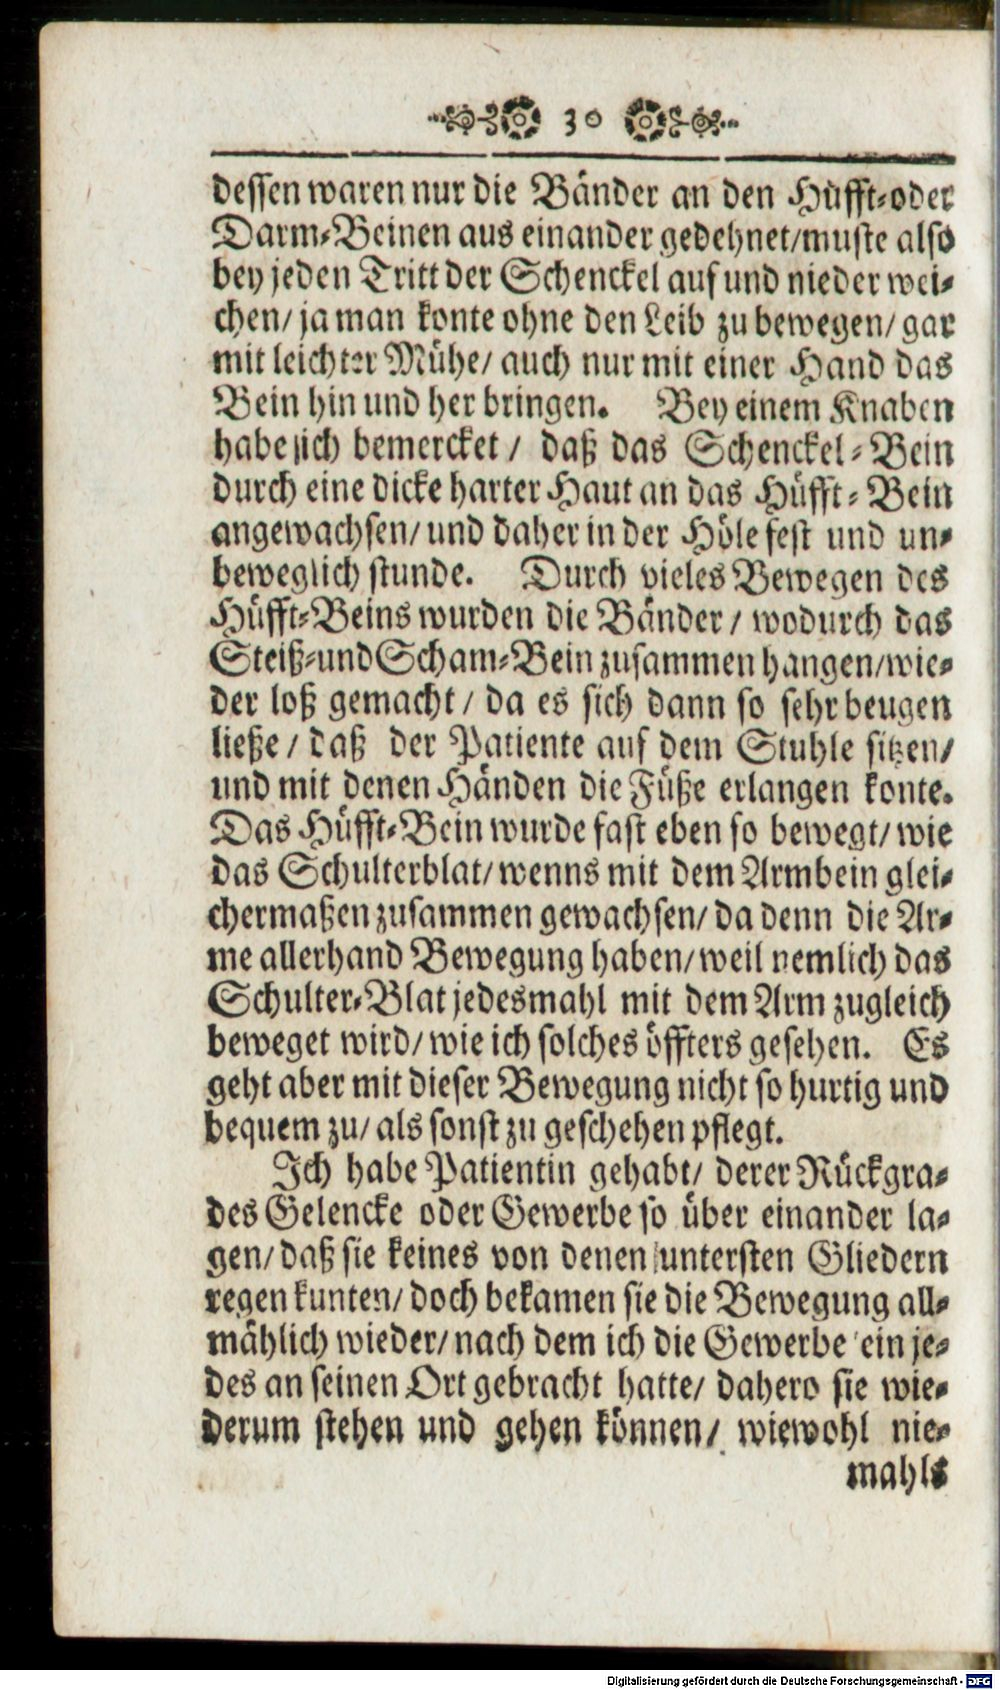 30
dessen waren nur die Bänder an den Hüfft-oder
Darm-Beinen aus einander gedehnet/muste also
bey jeden Tritt der Schenckel auf und nieder wei-
chen/ ja man konte ohne den Leib zu bewegen/ gar
mit leichter Mühe/ auch nur mit einer Hand das
Bein hin und her bringen. Bey einem Knaben
habe ich bemercket / daß das Schenckel-Bein
durch eine dicke harter Haut an das Hüfft-Bein
angewachsen/ und daher in der Höle fest und un-
beweglich stunde. Durch vieles Bewegen des
Hüfft-Beins wurden die Bänder / wodurch das
Steiß-und Scham-Bein zusammen hangen/wie-
der loß gemacht / da es sich dann so sehr beugen
ließe / daß der Patiente auf dem Stuhle sitzen/
und mit denen Händen die Füße erlangen konte.
Das Hüfft-Bein wurde fast eben so bewegt/ wie
das Schulterblat/ wenns mit dem Armbein glei-
chermaßen zusammen gewachsen/ da denn die Ar-
me allerhand Bewegung haben/ weil nemlich das
Schulter-Blat jedesmahl mit dem Arm zugleich
beweget wird/ wie ich solches öffters gesehen. Es
geht aber mit dieser Bewegung nicht so hurtig und
bequem zu/ als sonst zu geschehen pflegt.
Ich habe Patientin gehabt/ derer Rückgra-
des Gelencke oder Gewerbe so über einander la-
gen/ daß sie keines von denen untersten Gliedern
regen kunten/ doch bekamen sie die Bewegung all-
mählich wieder/ nach dem ich die Gewerbe ein je-
des an seinen Ort gebracht hatte/ dahero sie wie-
derum stehen und gehen können/ wiewohl nie-
mahls
Digitalisierung gefördert durch die Deutsche Forschungsgemeinschaft - DFG